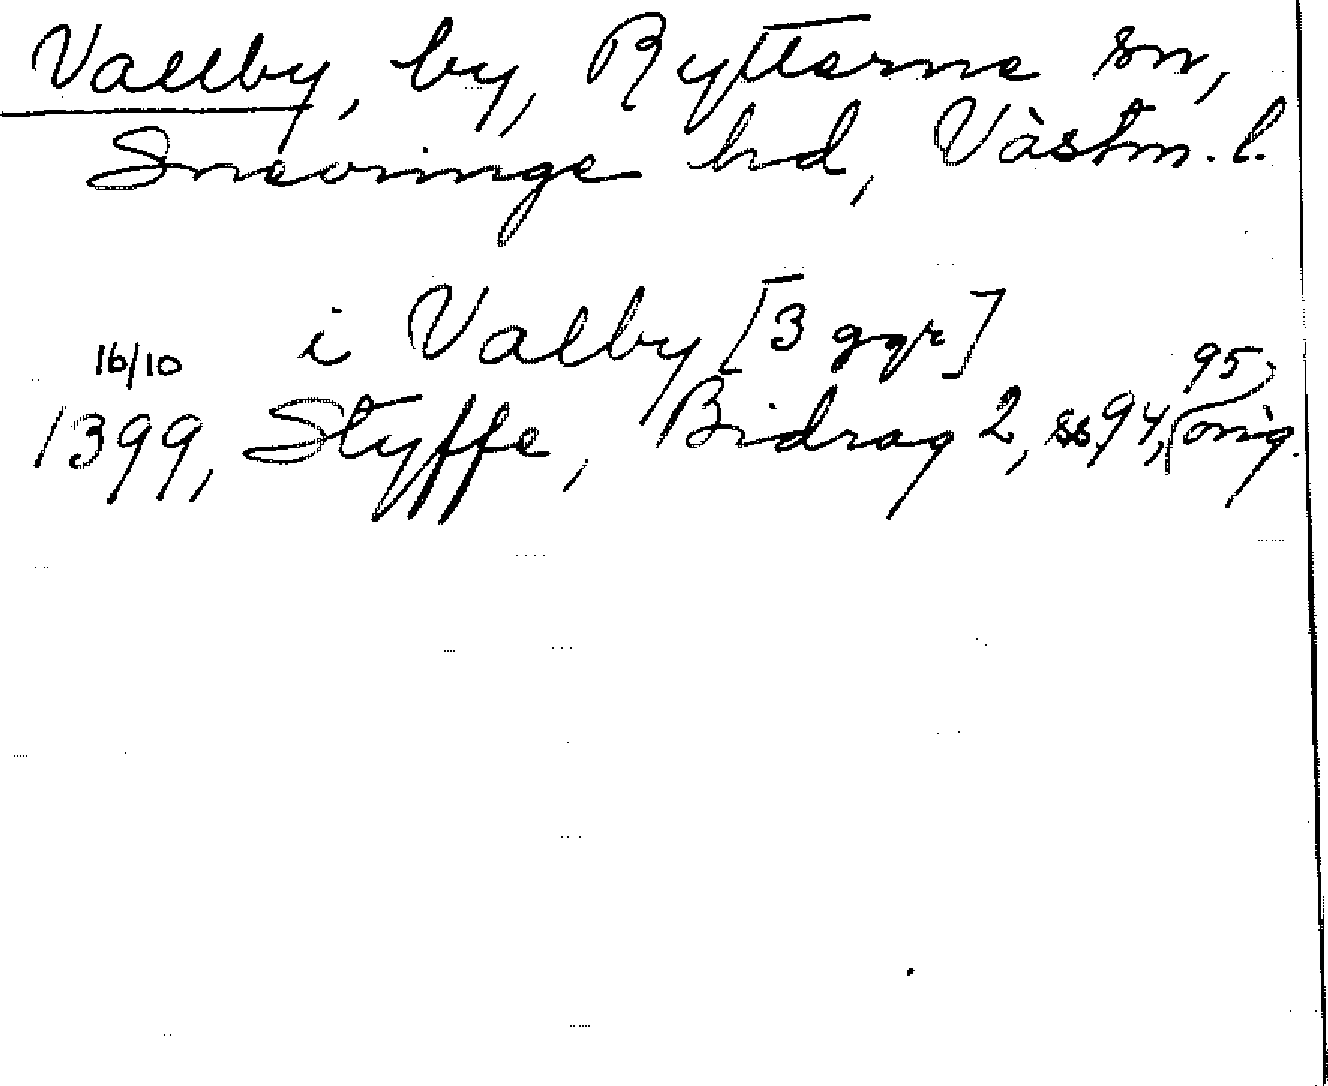 Vallby, by, Rytterne sn,
Snevringe hd, Västm. l.
i Valby [3 ggr]
16/10
1399, Styffe, Bidrag 2, ss 94, 95, orig.